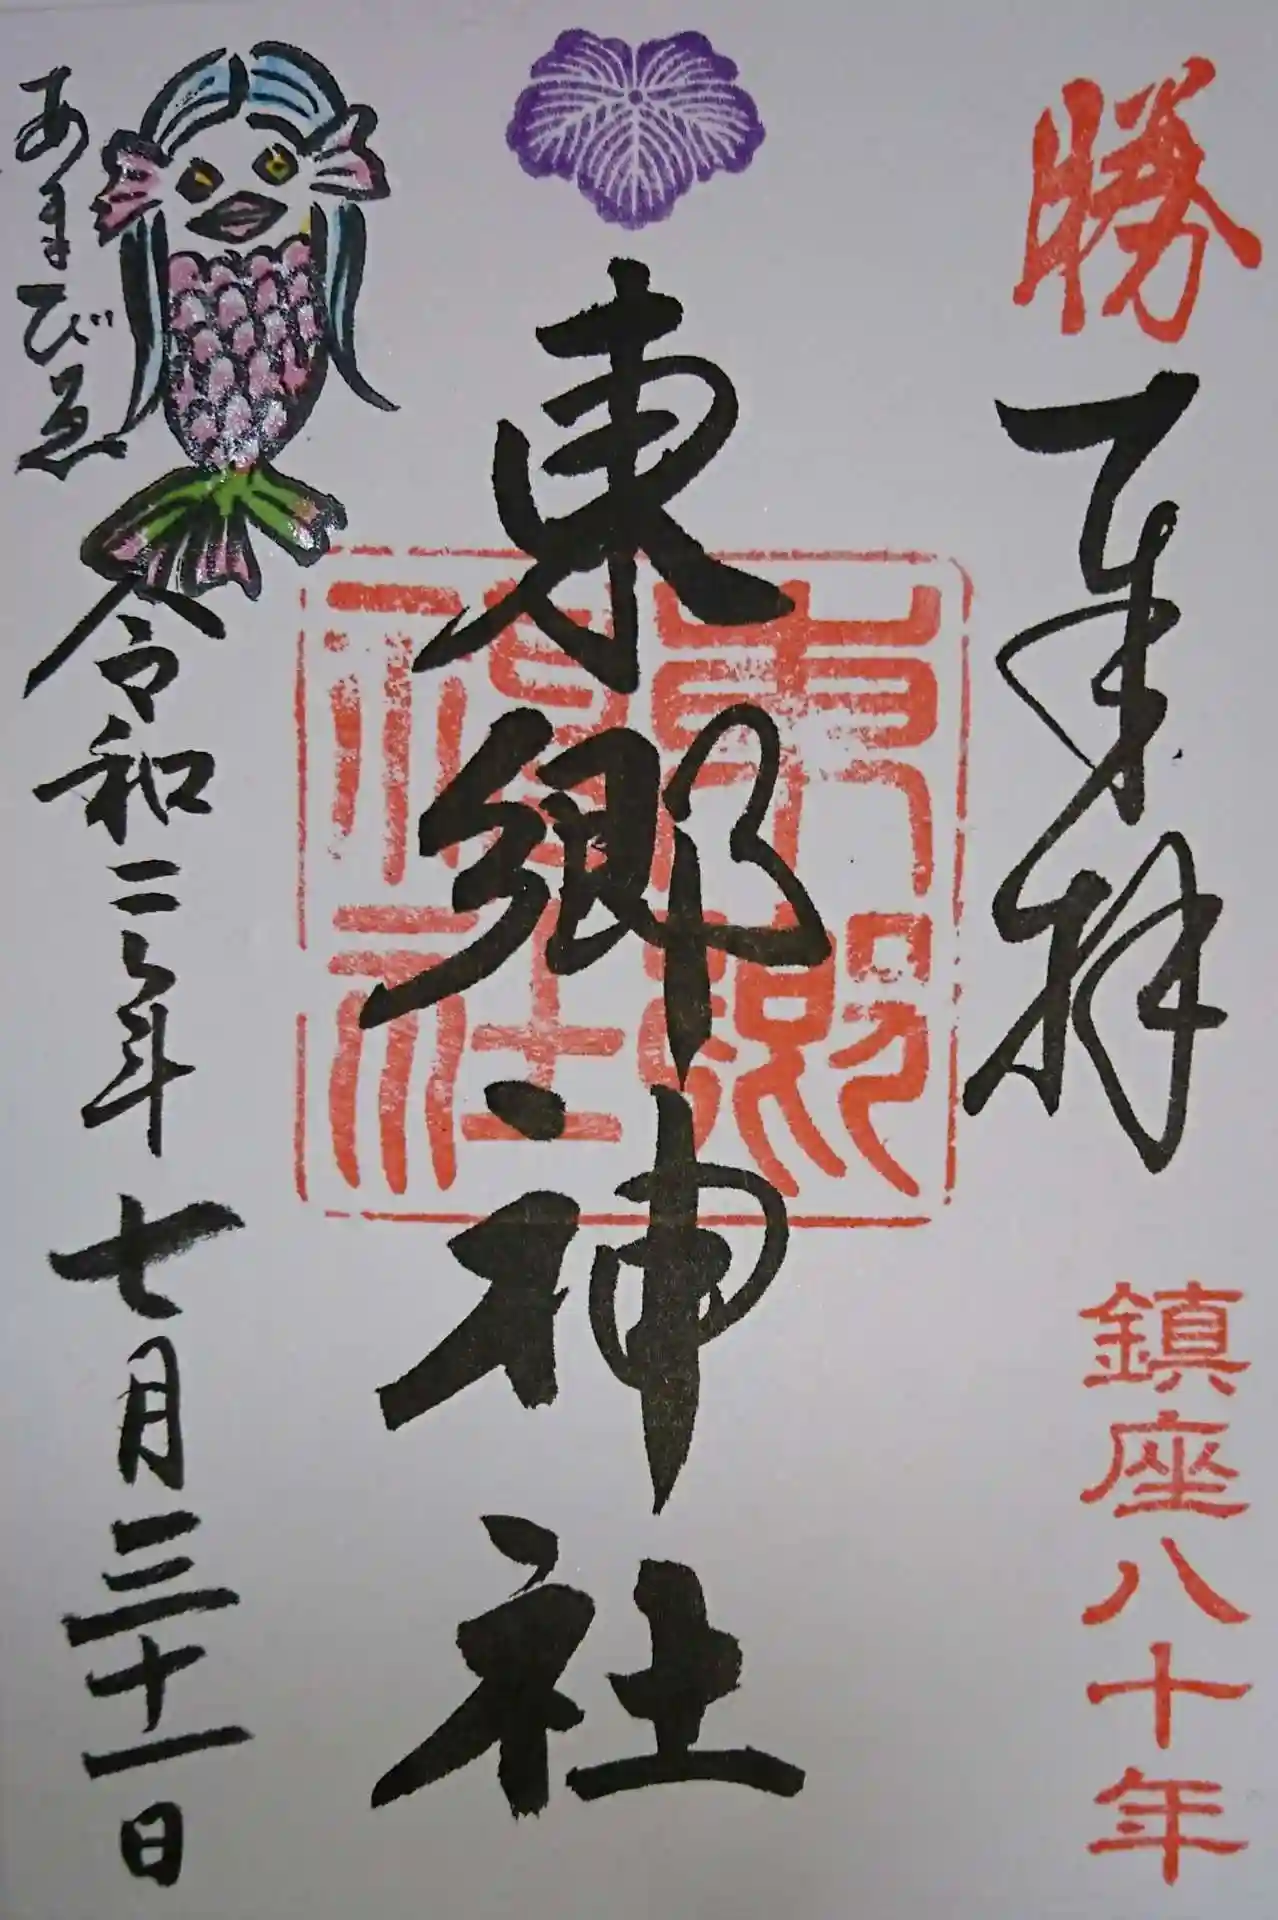 勝
奉拝
鎮座八十年
東郷神社
東郷神社
あまびゑ
令和二年
七月三十一日